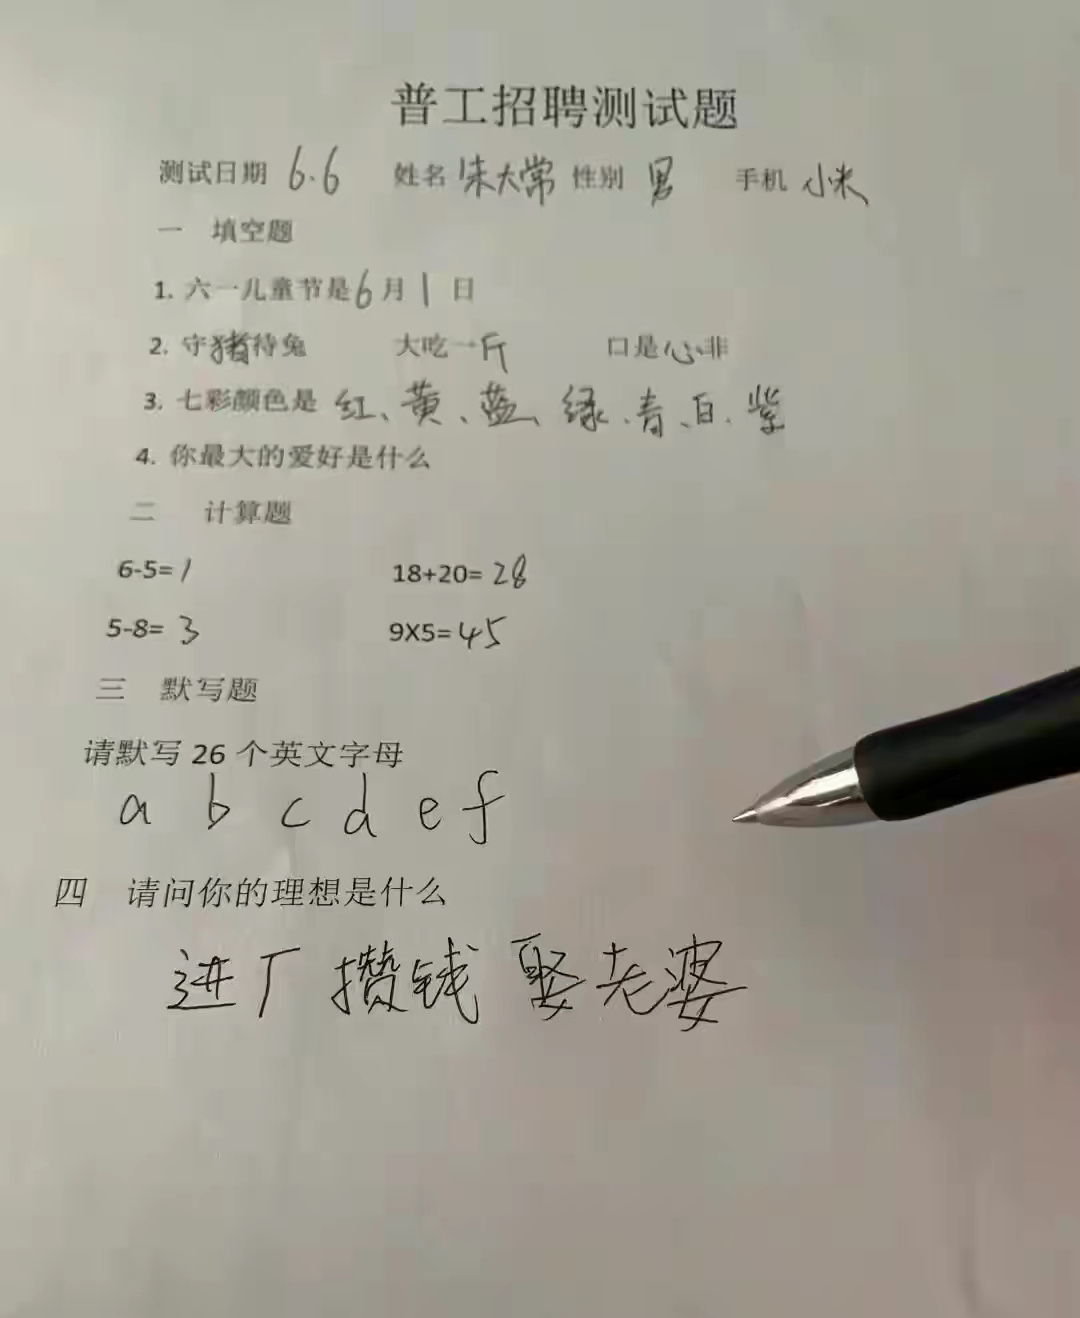 普工招聘测试题
测试日期 6.6 姓名 朱大常 性别 男 手机 小米
一 填空题
1. 六一儿童节是6月1日
2. 守猪待兔 大吃一斤 口是心非
3. 七彩颜色是 红、黄、蓝、绿、青、白、紫
4. 你最大的爱好是什么
二 计算题
6-5=1 18+20=28
5-8=3 9X5=45
三 默写题
请默写 26 个英文字母
a b c d e f
四 请问你的理想是什么
进厂 攒钱 娶老婆